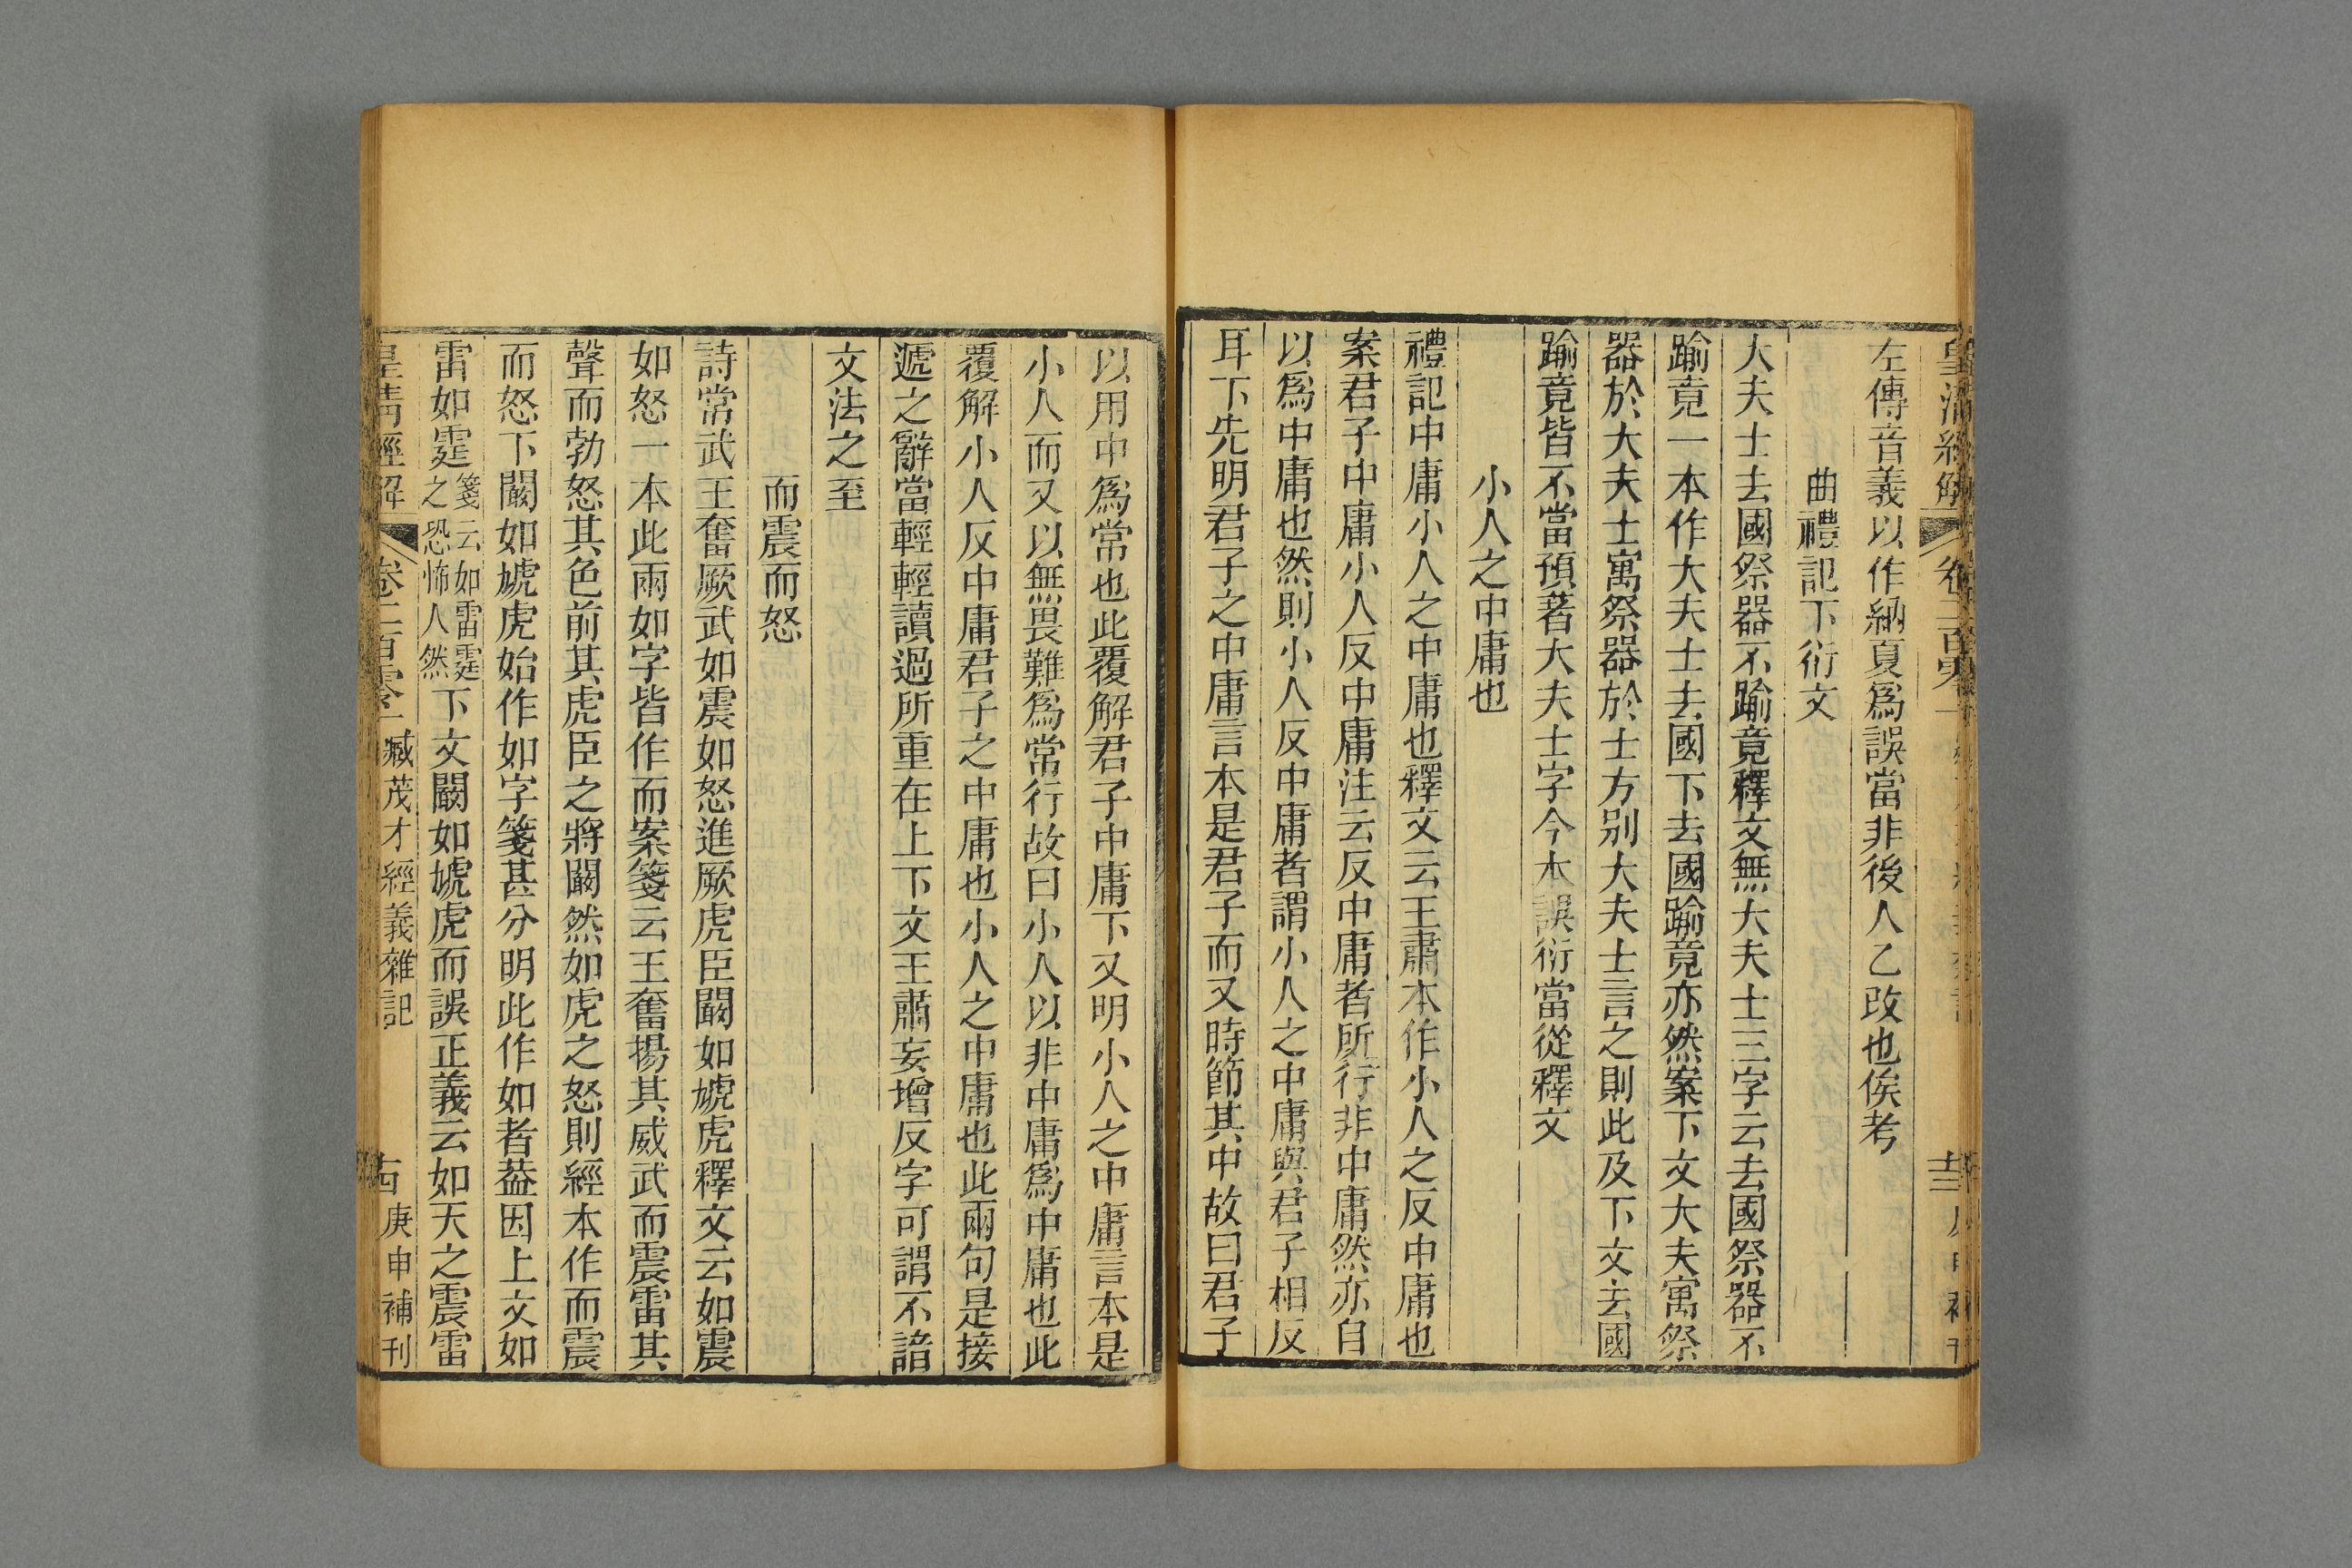 皇清經解
卷二百零一
左傳音義以作納夏爲誤當非後人乙改也俟考
曲禮記下衍文
大夫士去國祭器不踰竟釋文無大夫士三字云去國祭器不
踰竟一本作大夫士去國下去國踰竟亦然案下文大夫寓祭
器於大夫士寓祭器於士方别大夫士言之則此及下文去國
踰竟皆不當預著大夫士字今本誤衍當從釋文
小人之中庸也
禮記中庸小人之中庸也釋文云王肅本作小人之反中庸也
案君子中庸小人反中庸注云反中庸者所行非中庸然亦自
以爲中庸也然則小人反中庸者謂小人之中庸與君子相反
耳下先明君子之中庸言本是君子而又時節其中故曰君子
以用中爲常也此覆解君子中庸下又明小人之中庸言本是
小人而又以無畏難爲常行故曰小人以非中庸爲中庸也此
覆解小人反中庸君子之中庸也小人之中庸也此兩句是接
遞之辭當輕輕讀過所重在上下文王肅妄增反字可謂不諳
文法之至
而震而怒
詩常武王奮厥武如震如怒進厥虎臣闞如虓虎釋文云如震
如怒一本此兩如字皆作而案箋云王奮揚其威武而震雷其
聲而勃怒其色前其虎臣之將闞然如虎之怒則經本作而震
而怒下闞如虓虎始作如字箋甚分明此作如者葢因上文如
雷如霆箋云如雷霆之恐怖人然下文闞如虓虎而誤正義云如天之震雷
皇清經解 卷二百零一 臧茂才經義雜記 古 庚申補刊